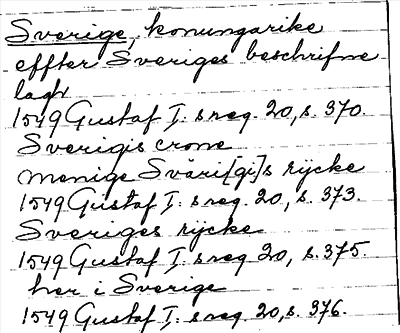 Sverige, konungarike
effter Sveriges beschrifne
lagh
1549 Gustaf I: s reg. 20, s. 370.
Sverigis crone
menige Swäri[gi]s rijcke
1549 Gustaf I: s reg. 20, s. 373.
Sveriges rijcke
1549 Gustaf I: s reg. 20, s. 375.
her i Sverige
1549 Gustaf I: s reg. 20, s. 376.